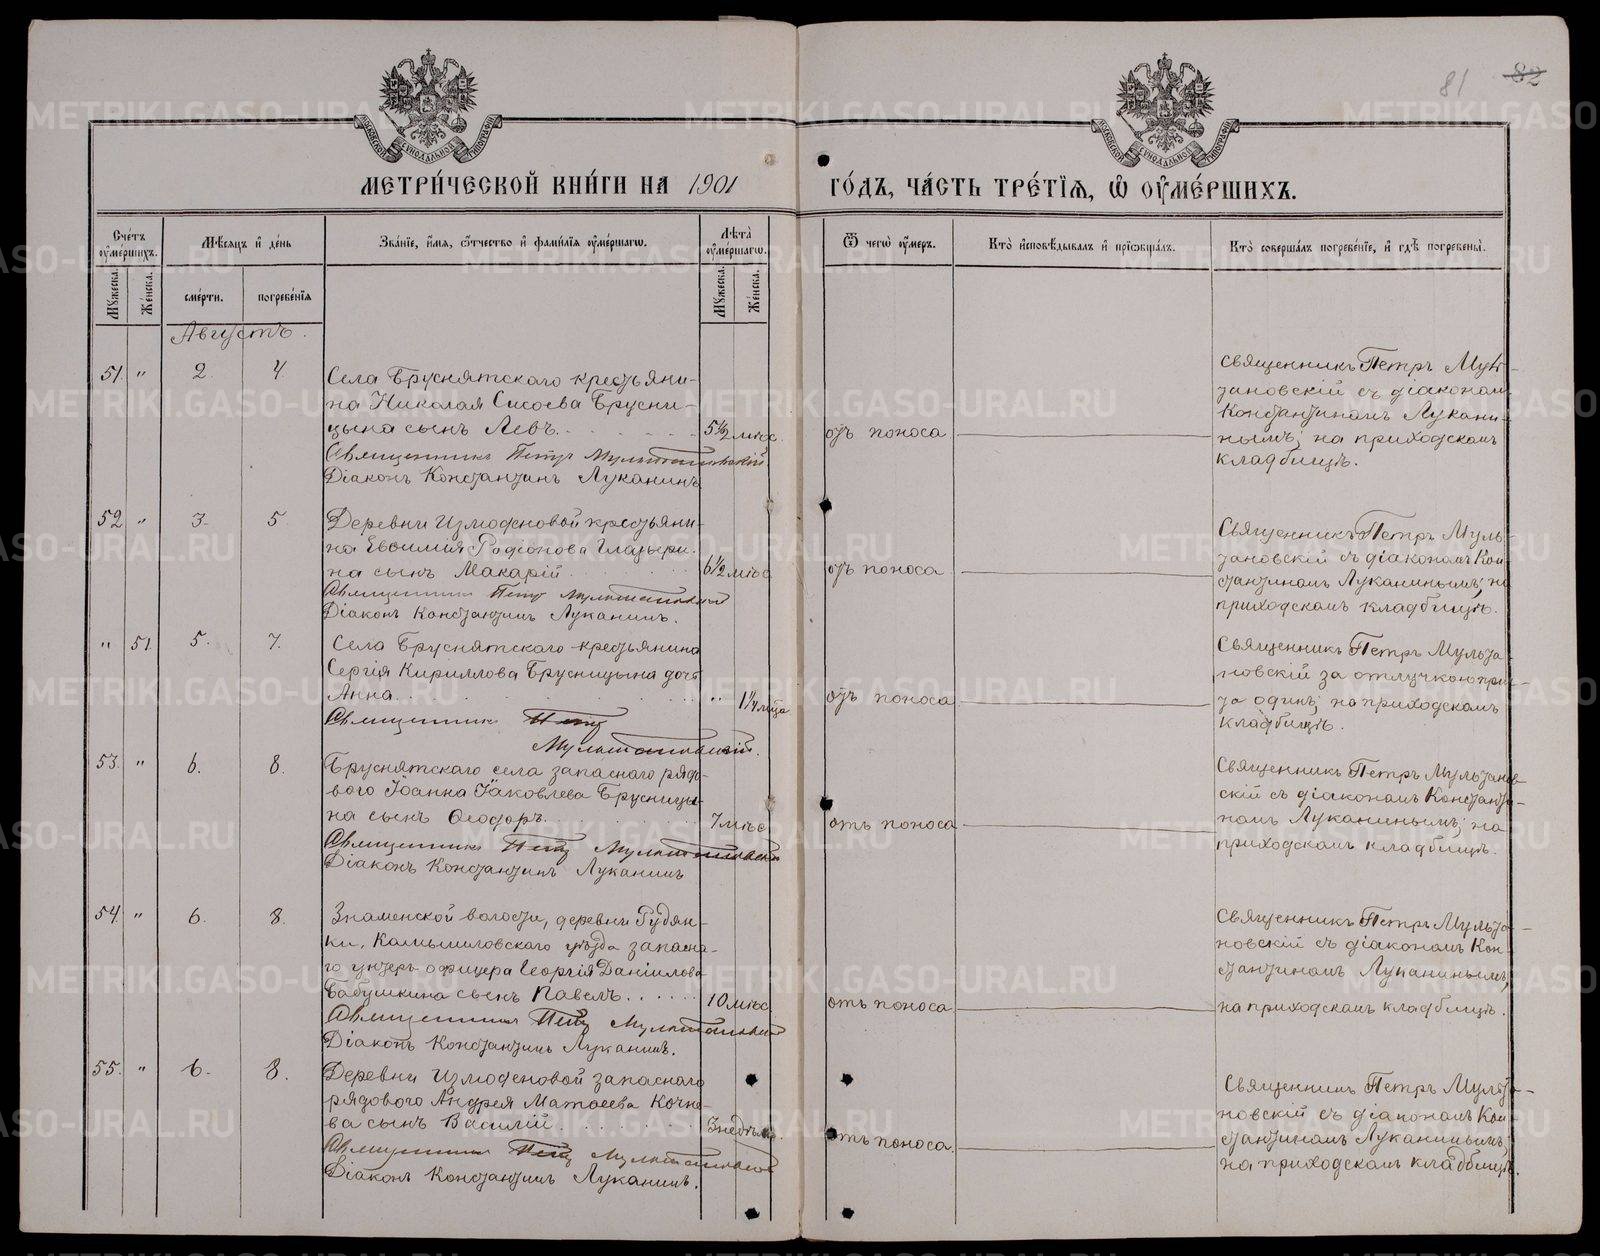 81 82
МЕТРИ́ЧЕСКОЙ КНИ́ГИ НА 1901 ГО́ДЪ, ЧА́СТЬ ТРЕ́ТЇѦ, Ѡ҆ ОУ҆МЕ́РШИХЪ.
Сче́тъ оу҆ме́ршихъ.
Мѣ́сѧцъ и҆ де́нь
Зва́нїе, и҆́мѧ, ѻ҆́тчество и҆ фами́лїѧ оу҆ме́ршагѡ.
Лѣ́та оу҆ме́ршагѡ.
Ѿ чегѡ̀ оу҆́меръ.
Кто̀ и҆сповѣ́дывалъ и҆ прїѡбща́лъ.
Кто̀ соверша́лъ погребе́нїе, и҆ гдѣ̀ погребены̀.
Мꙋ́жеска.
Же́нска.
сме́рти.
погребе́нїѧ
Мꙋ́жеска.
Же́нска.
Августъ.
51. " 2. 4.
Села Бруснятскаго крестьяни-
на Николая Сысоева Брусни-
цына сынъ Левъ.
5½ мѣс.
отъ поноса
Священникъ Петръ Мультановскій
Діаконъ Константинъ Луканинъ
Священникъ Петръ Муль-
тановскій съ діакономъ
Константиномъ Лукани-
нымъ; на приходскомъ
кладбищѣ.
52 " 3. 5.
Деревни Измоденовой крестьяни-
на Евѳимія Родіонова Глазыри-
на сынъ Макарій
6½ мѣс.
отъ поноса
Священникъ Петръ Мультановскій
Діаконъ Константинъ Луканинъ.
Священникъ Петръ Муль-
тановскій съ діакономъ Кон-
стантиномъ Луканинымъ; на
приходскомъ кладбищѣ.
" 51. 5. 7.
Села Бруснятскаго крестьянина
Сергія Кириллова Брусницына дочь
Анна.
" 1¼ мѣсца
отъ поноса
Священникъ Петръ
Мультановскій.
Священникъ Петръ Мульта-
новскій за отлучкою при-
та одинъ; на приходскомъ
кладбищѣ.
53. " 6. 8.
Бруснятскаго села запаснаго рядо-
вого Іоанна Іаковлева Брусницы-
на сынъ Ѳеодоръ.
7 мѣс.
отъ поноса
Священникъ Петръ Мультановскій
Діаконъ Константинъ Луканинъ
Священникъ Петръ Мультанов-
скій съ діакономъ Константи-
номъ Луканинымъ; на
приходскомъ кладбищѣ.
54. " 6. 8.
Знаменской волости, деревни Рудян-
ки, Камышловскаго уѣзда запасна-
го унтеръ-офицера Георгія Даніилова
Бабушкина сынъ Павелъ.
10 мѣс.
отъ поноса
Священникъ Петръ Мультановскій
Діаконъ Константинъ Луканинъ.
Священникъ Петръ Мульта-
новскій съ діакономъ Кон-
стантиномъ Луканинымъ;
на приходскомъ кладбищѣ.
55. " 6. 8.
Деревни Измоденовой запаснаго
рядового Андрея Матѳеева Кочне-
ва сынъ Василій
3 недѣль
отъ поноса.
Священникъ Петръ Мультановскій
Діаконъ Константинъ Луканинъ.
Священникъ Петръ Мульта-
новскій съ діакономъ Кон-
стантиномъ Луканинымъ;
на приходскомъ кладбищѣ.
METRIKI.GASO-URAL.RU